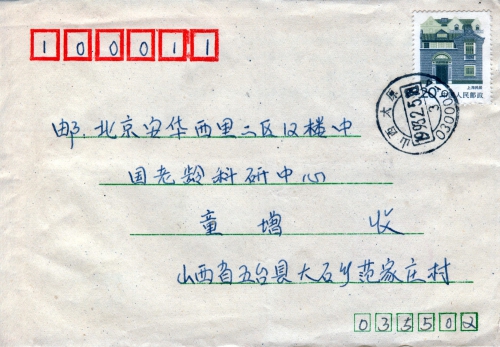 100011
上海民居
20分 中国人民邮政
山西太原
1992.2.5
030000
邮.北京安华西里二区12楼中
国老龄科研中心
童增 收
山西省五台县大石乡范家庄村
035502